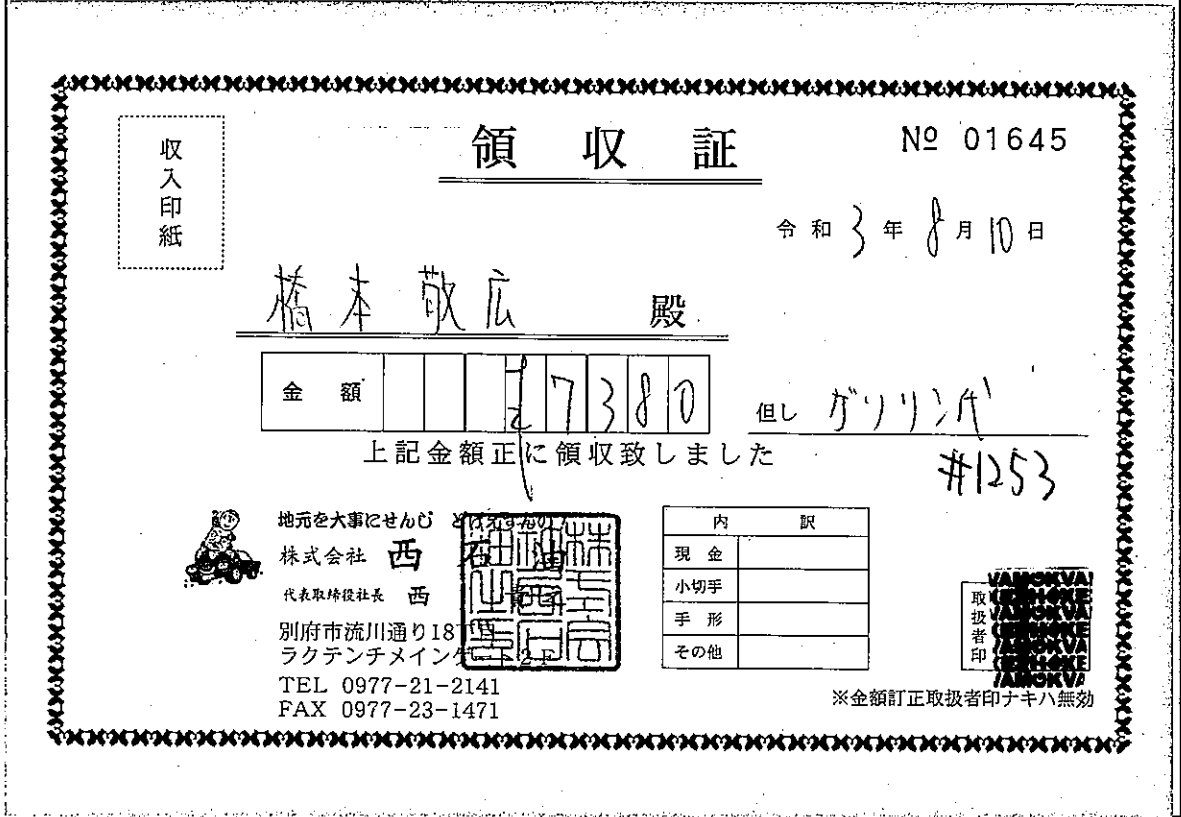 収入印紙
領収証
№ 01645
令和3年8月10日
橋本敬広 殿
金額 ¥7380
但し ガソリン代
上記金額正に領収致しました
#1253
地元を大事にせんじ
株式会社 西石油
代表取締役社長 西
別府市流川通り18丁目
ラクテンチメインゲート2F
TEL 0977-21-2141
FAX 0977-23-1471
内訳
現金
小切手
手形
その他
取扱者印
※金額訂正取扱者印ナキハ無効